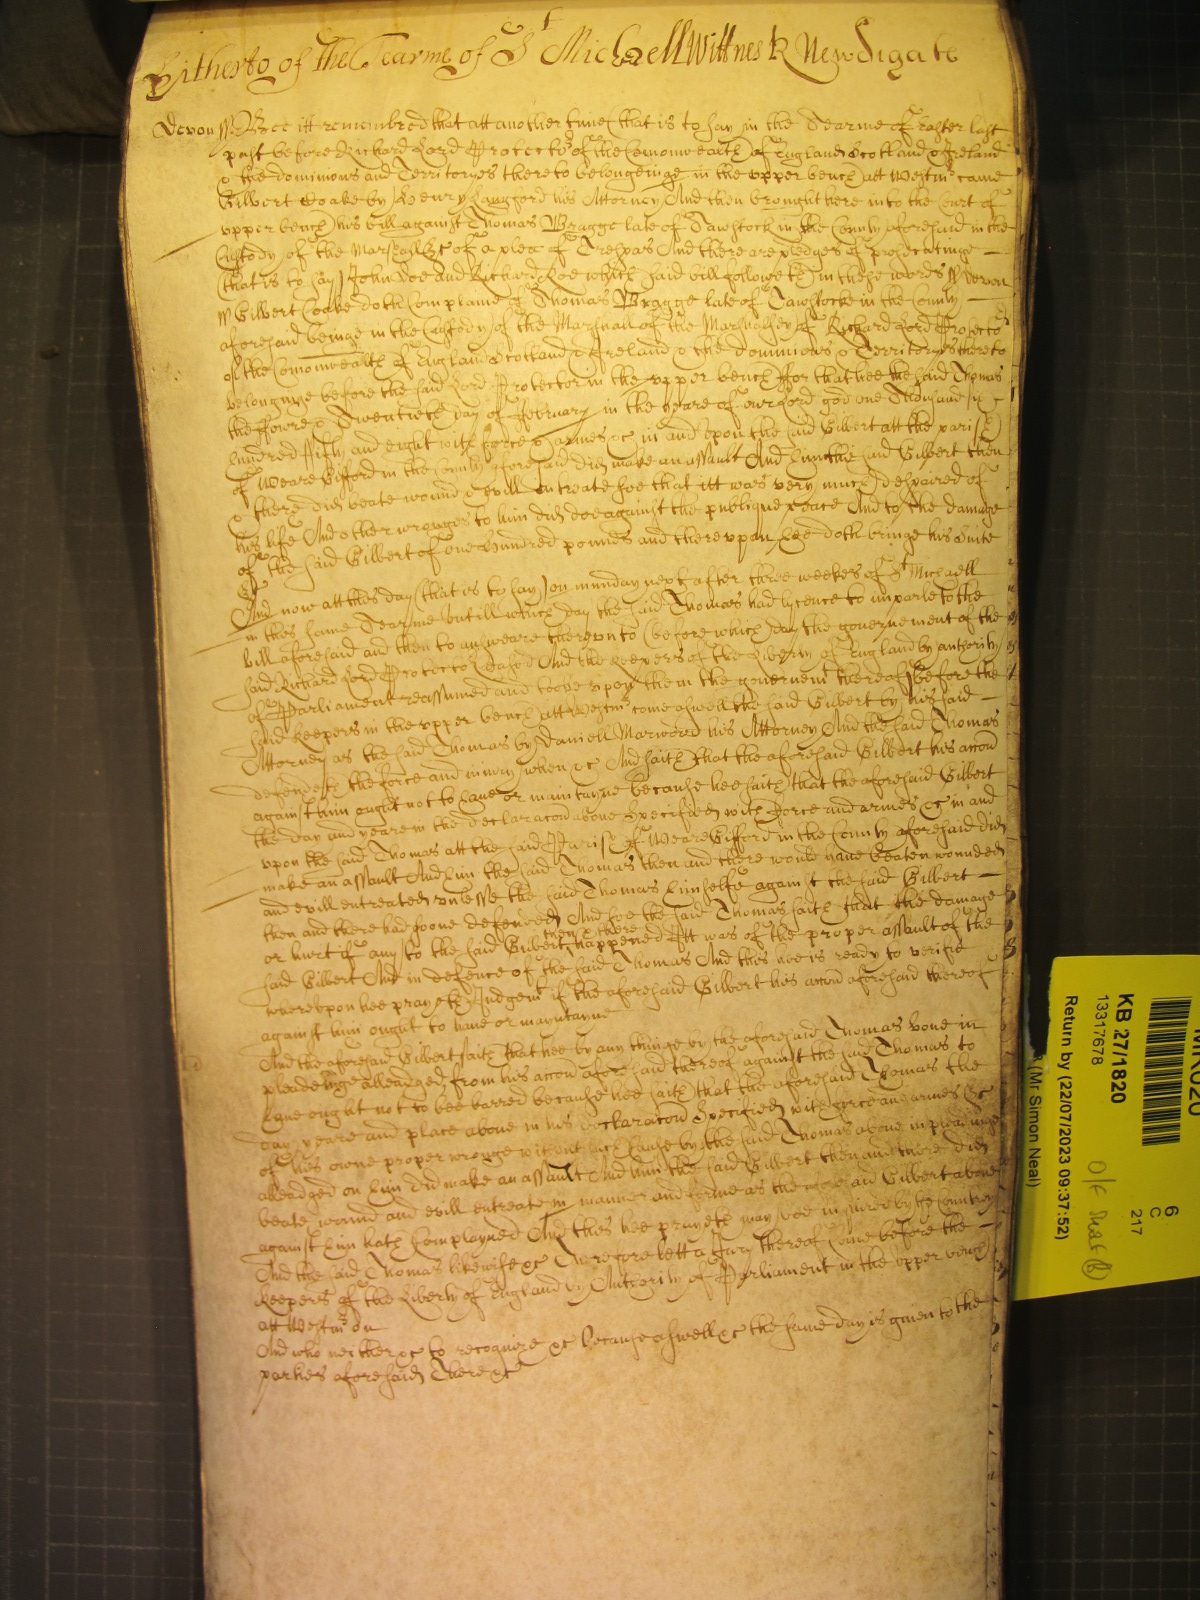 Hitherto of the Tearme of St Michaell Wittnes R Newdigate
Devon ss Bee itt remembred that att another time that is to say in the Tearme of Easter last
past before Richard Lord Protector of the Comonwealth of England Scotland & Ireland
& the dominions and Territoryes thereto belongeinge in the upper bench att Westmr came
Gilbert Coake by Henry Langford his Attorney And then brought here into the Court of
upper bench his bill against Thomas Bragge late of Tawstock in the County aforesaid in the
Custody of the Marshall &c of a plea of Trespas And there are pledges of prosecutinge
that is to say John Doe and Richard Roe which said bill followeth in these words ss Devon
ss Gilbert Coake doth Complaine of Thomas Bragge late of Tawstocke in the County
aforesaid beinge in the Custody of the Marshall of the Marshalsey of Richard Lord Protector
of the Comonwealth of England Scotland & Ireland & the dominions & Territoryes thereto
belonginge before the said Lord Protector in the upper bench ffor that hee the said Thomas
the ffowre & Twentieth day of ffebruary in the yeare of our Lord god one Thousand six
hundred ffifty and eight with force & armes &c in and upon the said Gilbert att the parish
of Weare Gifford in the County aforesaid did make an assault And him the said Gilbert then
& there did beate wound & evill entreate soe that itt was very much despaired of
his life And other wronges to him did doe against the publique peace And to the damage
of the said Gilbert of one hundred pounds and thereupon hee doth bringe his suite
&c
And now att this day that is to say on munday next after three weekes of St Michaell
in this same Tearme untill which day the said Thomas had lycence to imparle to the
bill aforesaid and then to answeare thereunto before which day the governement of the
said Richard Lord Protector Ceased And the Keepers of the Liberty of England by authority
of Parliament reassumed and tooke upon them the governemt thereof before the
said Keepers in the upper bench att Westmr come aswell the said Gilbert by his said
Attorney as the said Thomas by Daniell Marwood his Attorney And the said Thomas
defendeth the force and iniury when &c And saith that the aforesaid Gilbert his accon
against him ought not to have or maintayne because hee saith that the aforesaid Gilbert
the day and yeare in the declaracon above Specified with force and armes &c in and
upon the said Thomas att the said Parish of Weare Gifford in the County aforesaid did
make an assault And him the said Thomas then and there would have beaten wounded
and evill entreated unlesse the said Thomas himselfe against the said Gilbert
then and there had soone defended And soe the said Thomas saith that the damage
or hurt if any to the said Gilbert then & there happened Itt was of the proper assault of the
said Gilbert And in defence of the said Thomas And this hee is ready to verifie
whereupon hee prayeth Judgemt if the aforesaid Gilbert his accon aforesaid thereof
against him ought to have or mayntayne
And the aforesaid Gilbert saith that hee by any thinge by the aforesaid Thomas above in
pleadeinge alleadged from his accon aforesaid thereof against the said Thomas to
have ought not to bee barred because hee saith that the aforesaid Thomas the
day yeare and place above in his declaracon Specified with force and armes &c
of his owne proper wronge without such Cause by the said Thomas above in pleadinge
alleadged on him did make an assault And him the said Gilbert then and there did
beate wound and evill entreate in manner and forme as the aforesaid Gilbert above
against him hath Complayned And this hee prayeth may bee inquired by the Countrey
And the said Thomas likewise &c Therefore lett a Jury thereof Come before the
Keepers of the Liberty of England by Authority of Parliament in the upper bench
att Westmr on
And who neither &c to recognize &c because aswell &c the same day is given to the
parties aforesaid There &c
KB 27/1820
13317678
Return by (22/07/2023 09:37:52)
(Mr Simon Neal)
6
C
217